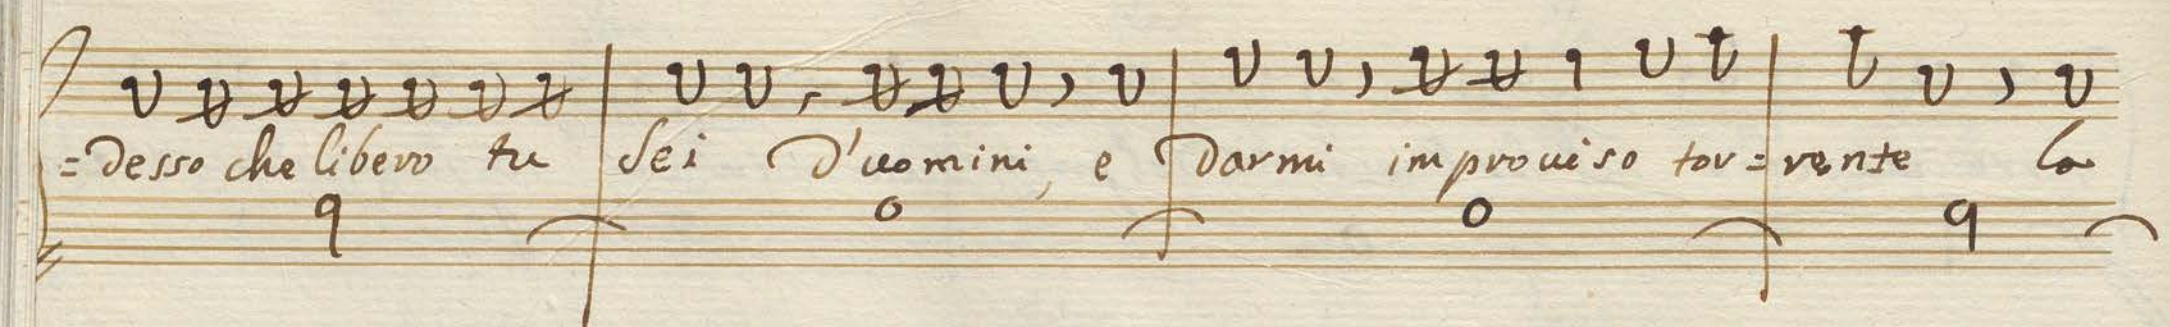 =desso che libero tu sei d'uomini, e darmi improuiso tor=rente la